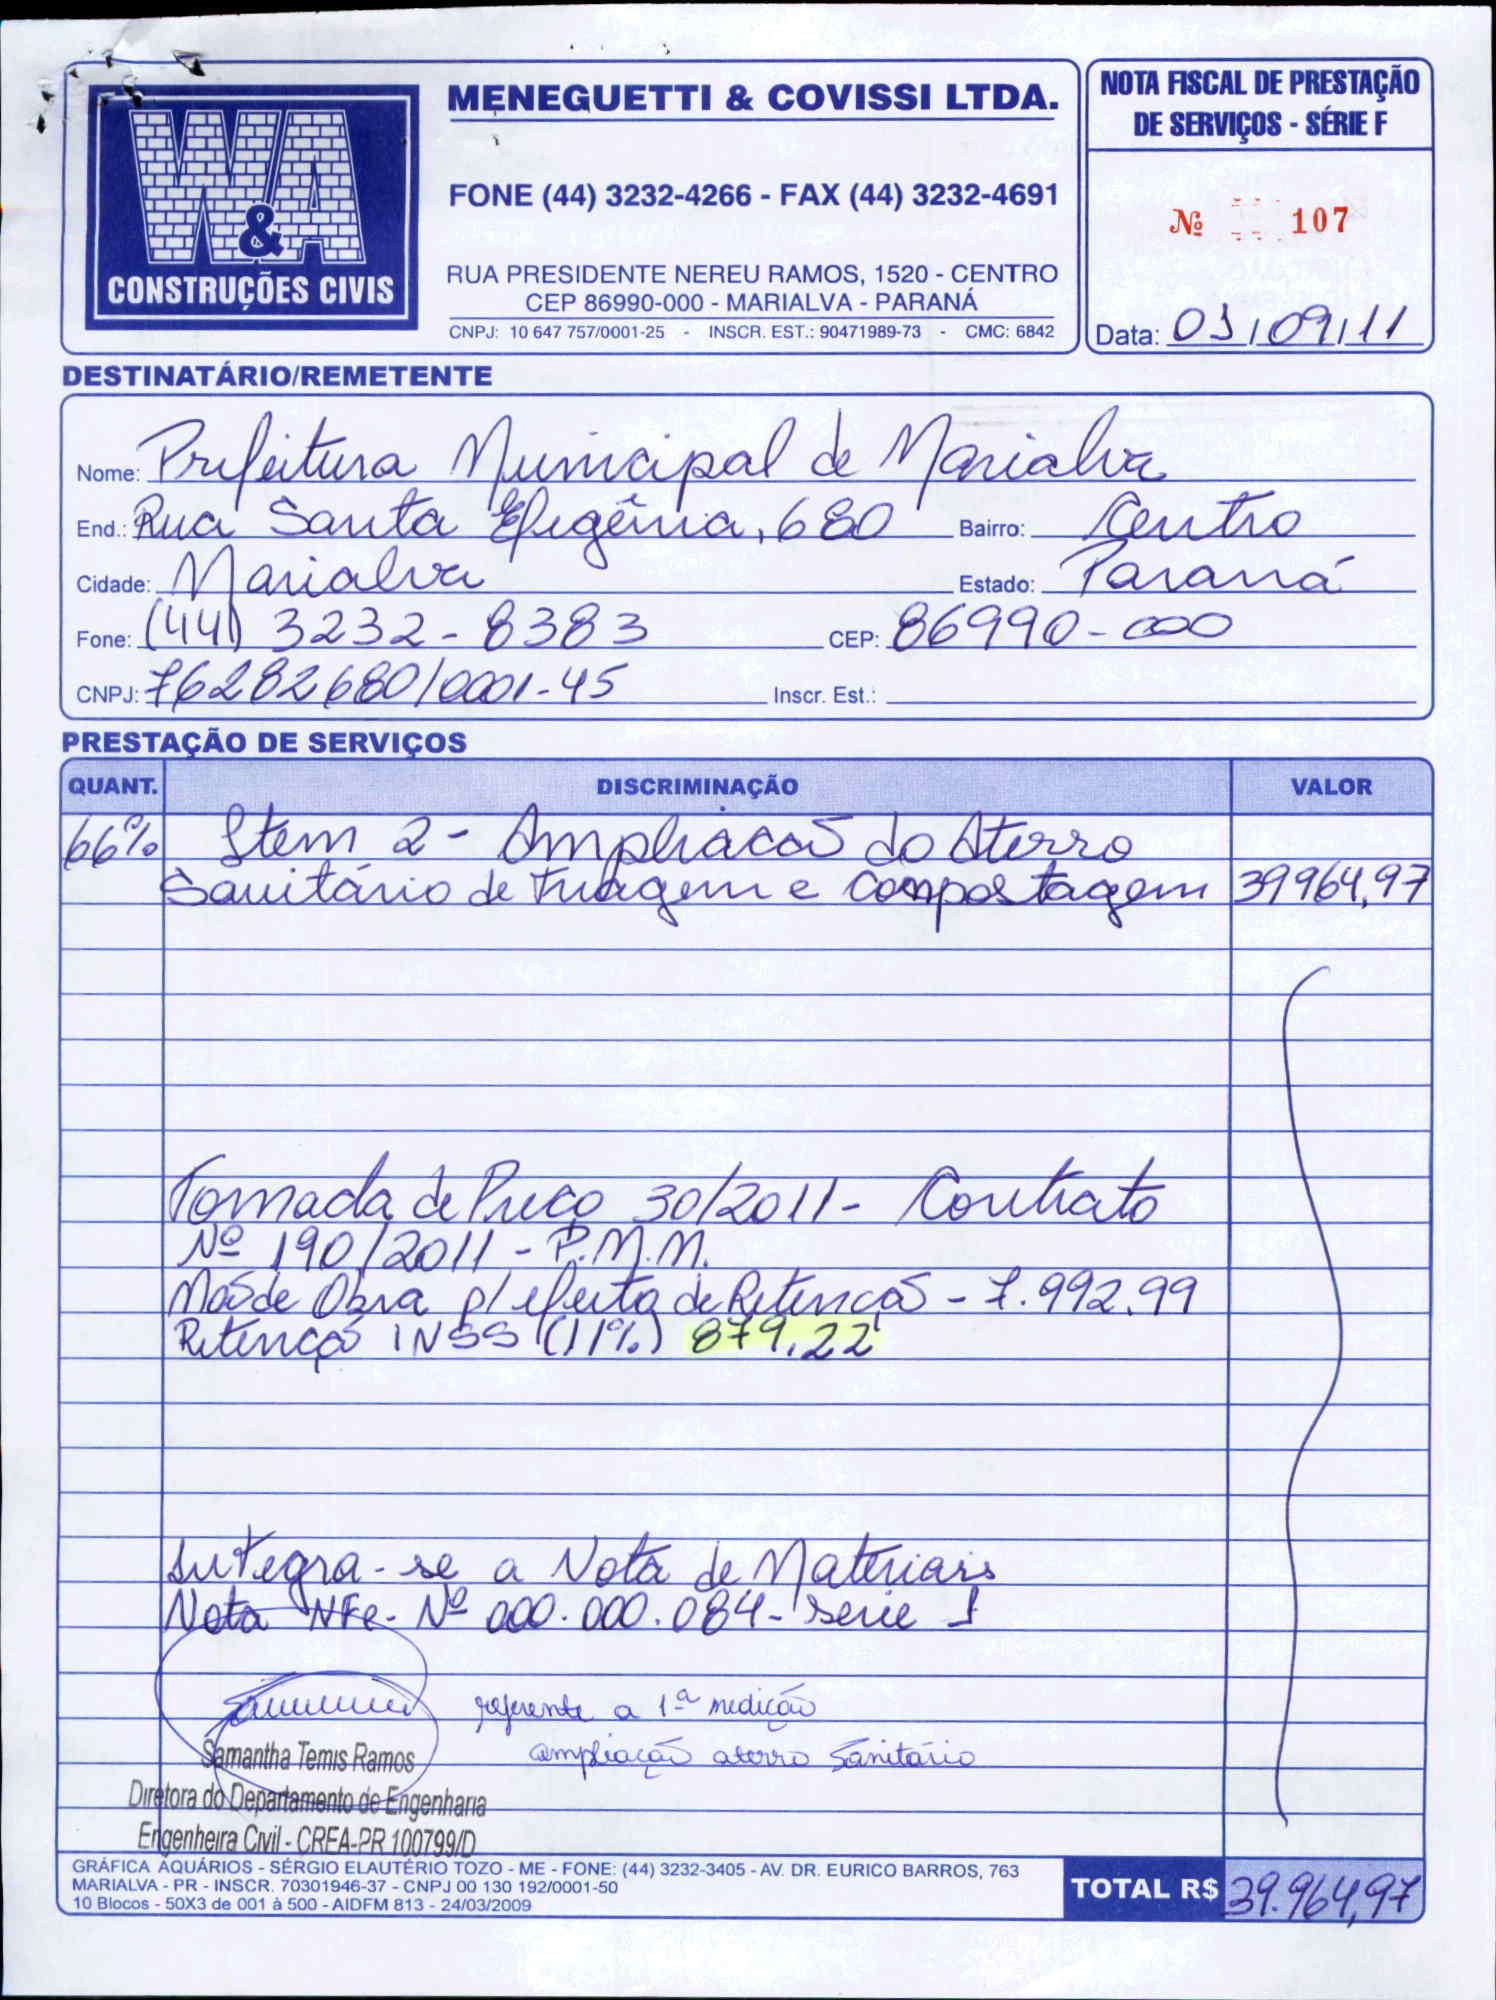 W&A
CONSTRUÇÕES CIVIS
MENEGUETTI & COVISSI LTDA.
FONE (44) 3232-4266 - FAX (44) 3232-4691
RUA PRESIDENTE NEREU RAMOS, 1520 - CENTRO
CEP 86990-000 - MARIALVA - PARANÁ
CNPJ: 10 647 757/0001-25 - INSCR. EST.: 90471989-73 - CMC: 6842
NOTA FISCAL DE PRESTAÇÃO
DE SERVIÇOS - SÉRIE F
Nº 107
Data: 01/09/11
DESTINATÁRIO/REMETENTE
Nome: Prefeitura Municipal de Marialva
End.: Rua Santa Efigênia, 680 Bairro: Centro
Cidade: Marialva Estado: Paraná
Fone: (44) 3232-8383 CEP: 86990-000
CNPJ: 76282680/0001-45 Inscr. Est.:
PRESTAÇÃO DE SERVIÇOS
QUANT. DISCRIMINAÇÃO VALOR
66% Item 2 - Ampliacão do Aterro
Sanitário de Triagem e Compostagem 39964,97
Tomada de Preço 30/2011 - Contrato
Nº 190/2011 - P.M.M.
Mão de Obra p/ efeito de Retenção - 7.992,99
Retenção INSS (11%) 879,22
Integra-se a Nota de Materiais
Nota NFe - Nº 000.000.084 - serie 1
referente a 1ª medição
ampliação aterro Sanitário
Samantha Temis Ramos
Diretora do Departamento de Engenharia
Engenheira Civil - CREA-PR 100799/D
GRÁFICA AQUÁRIOS - SÉRGIO ELAUTÉRIO TOZO - ME - FONE: (44) 3232-3405 - AV. DR. EURICO BARROS, 763
MARIALVA - PR - INSCR. 70301946-37 - CNPJ 00 130 192/0001-50
10 Blocos - 50X3 de 001 à 500 - AIDFM 813 - 24/03/2009
TOTAL R$ 39.964,97